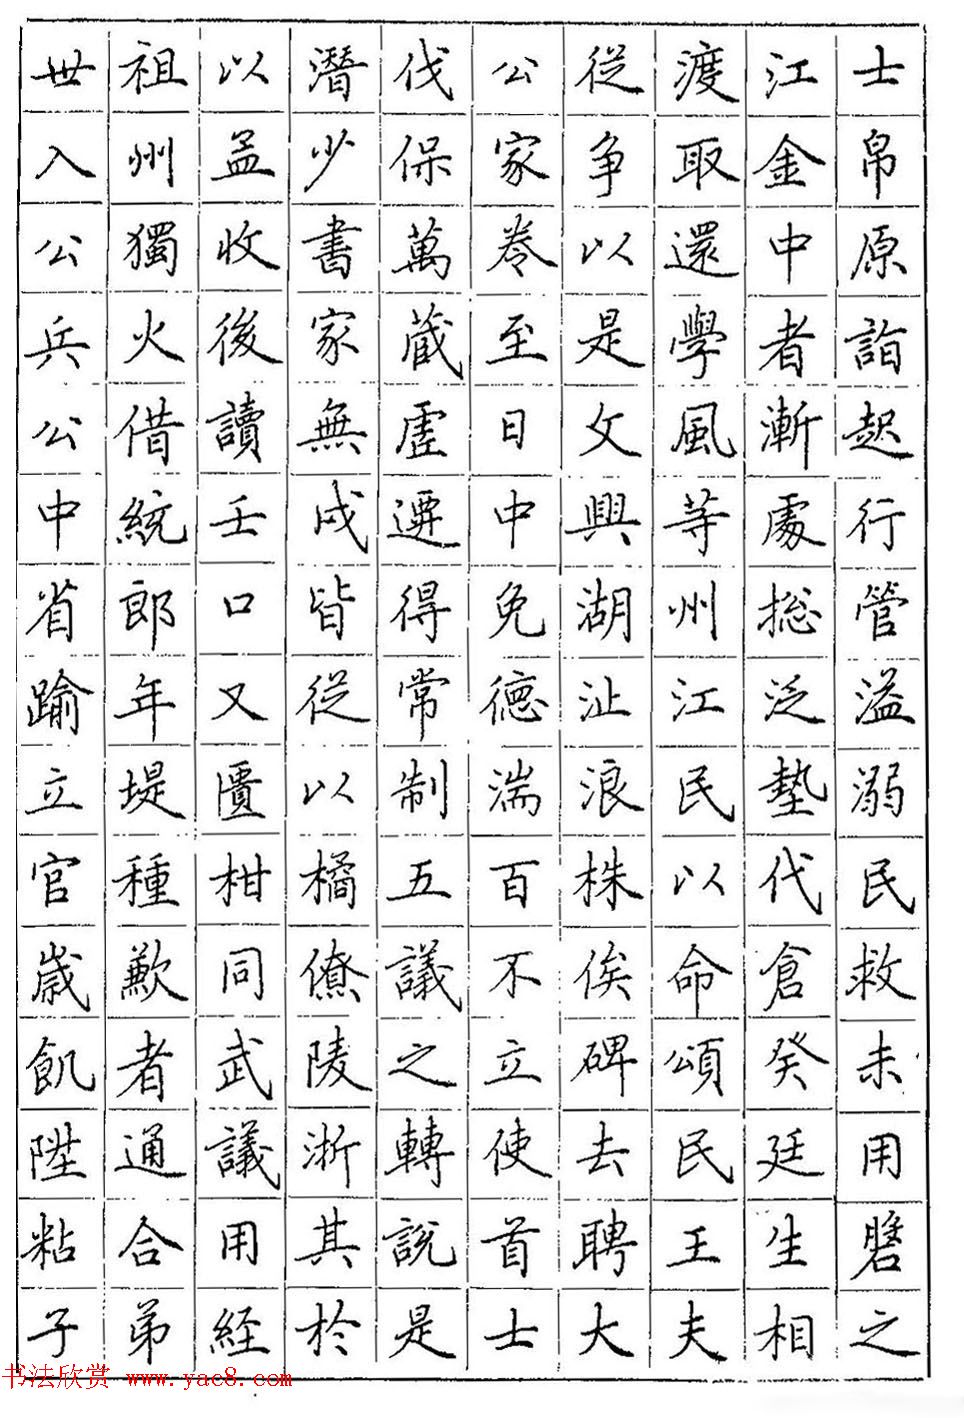 世祖以潛伐公從渡江士
入州孟少保家爭取金帛
公獨收書萬卷以還中原
兵火後家藏至是學者詣
公借讀無虛日文風漸起
中統壬戌選中興等處行
省郎口皆得免湖州總管
踰年又從常德沚江泛溢
立堤匱以制湍浪民墊溺
官種柑橘五百株以代民
歲歉同僚議不俟命倉救
飢者武陵之立碑頌癸未
陞通議浙轉使去民廷用
粘合用其說首聘王生之
子弟經於是士大夫相之
书法欣赏 www.yac8.com